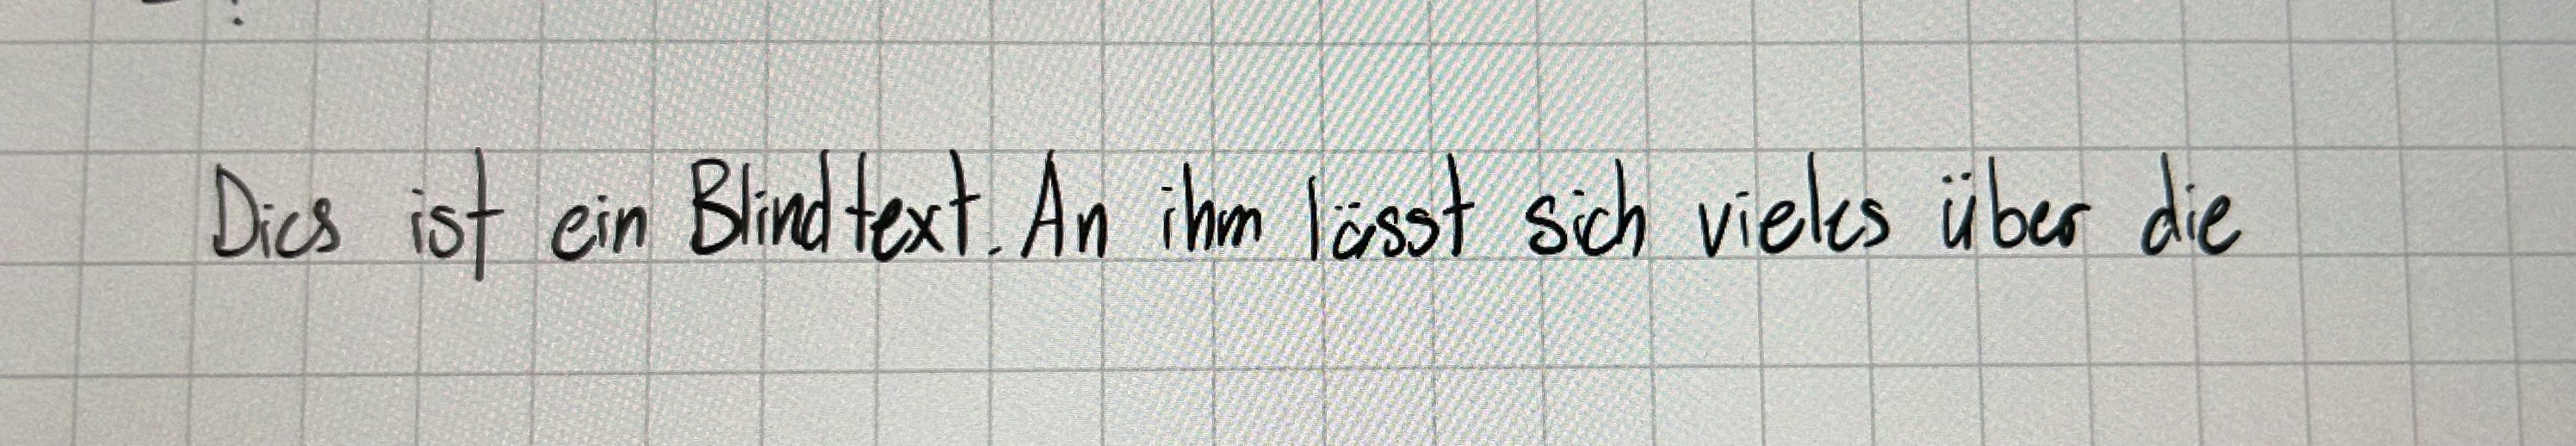 Dies ist ein Blindtext. An ihm lässt sich vieles über die